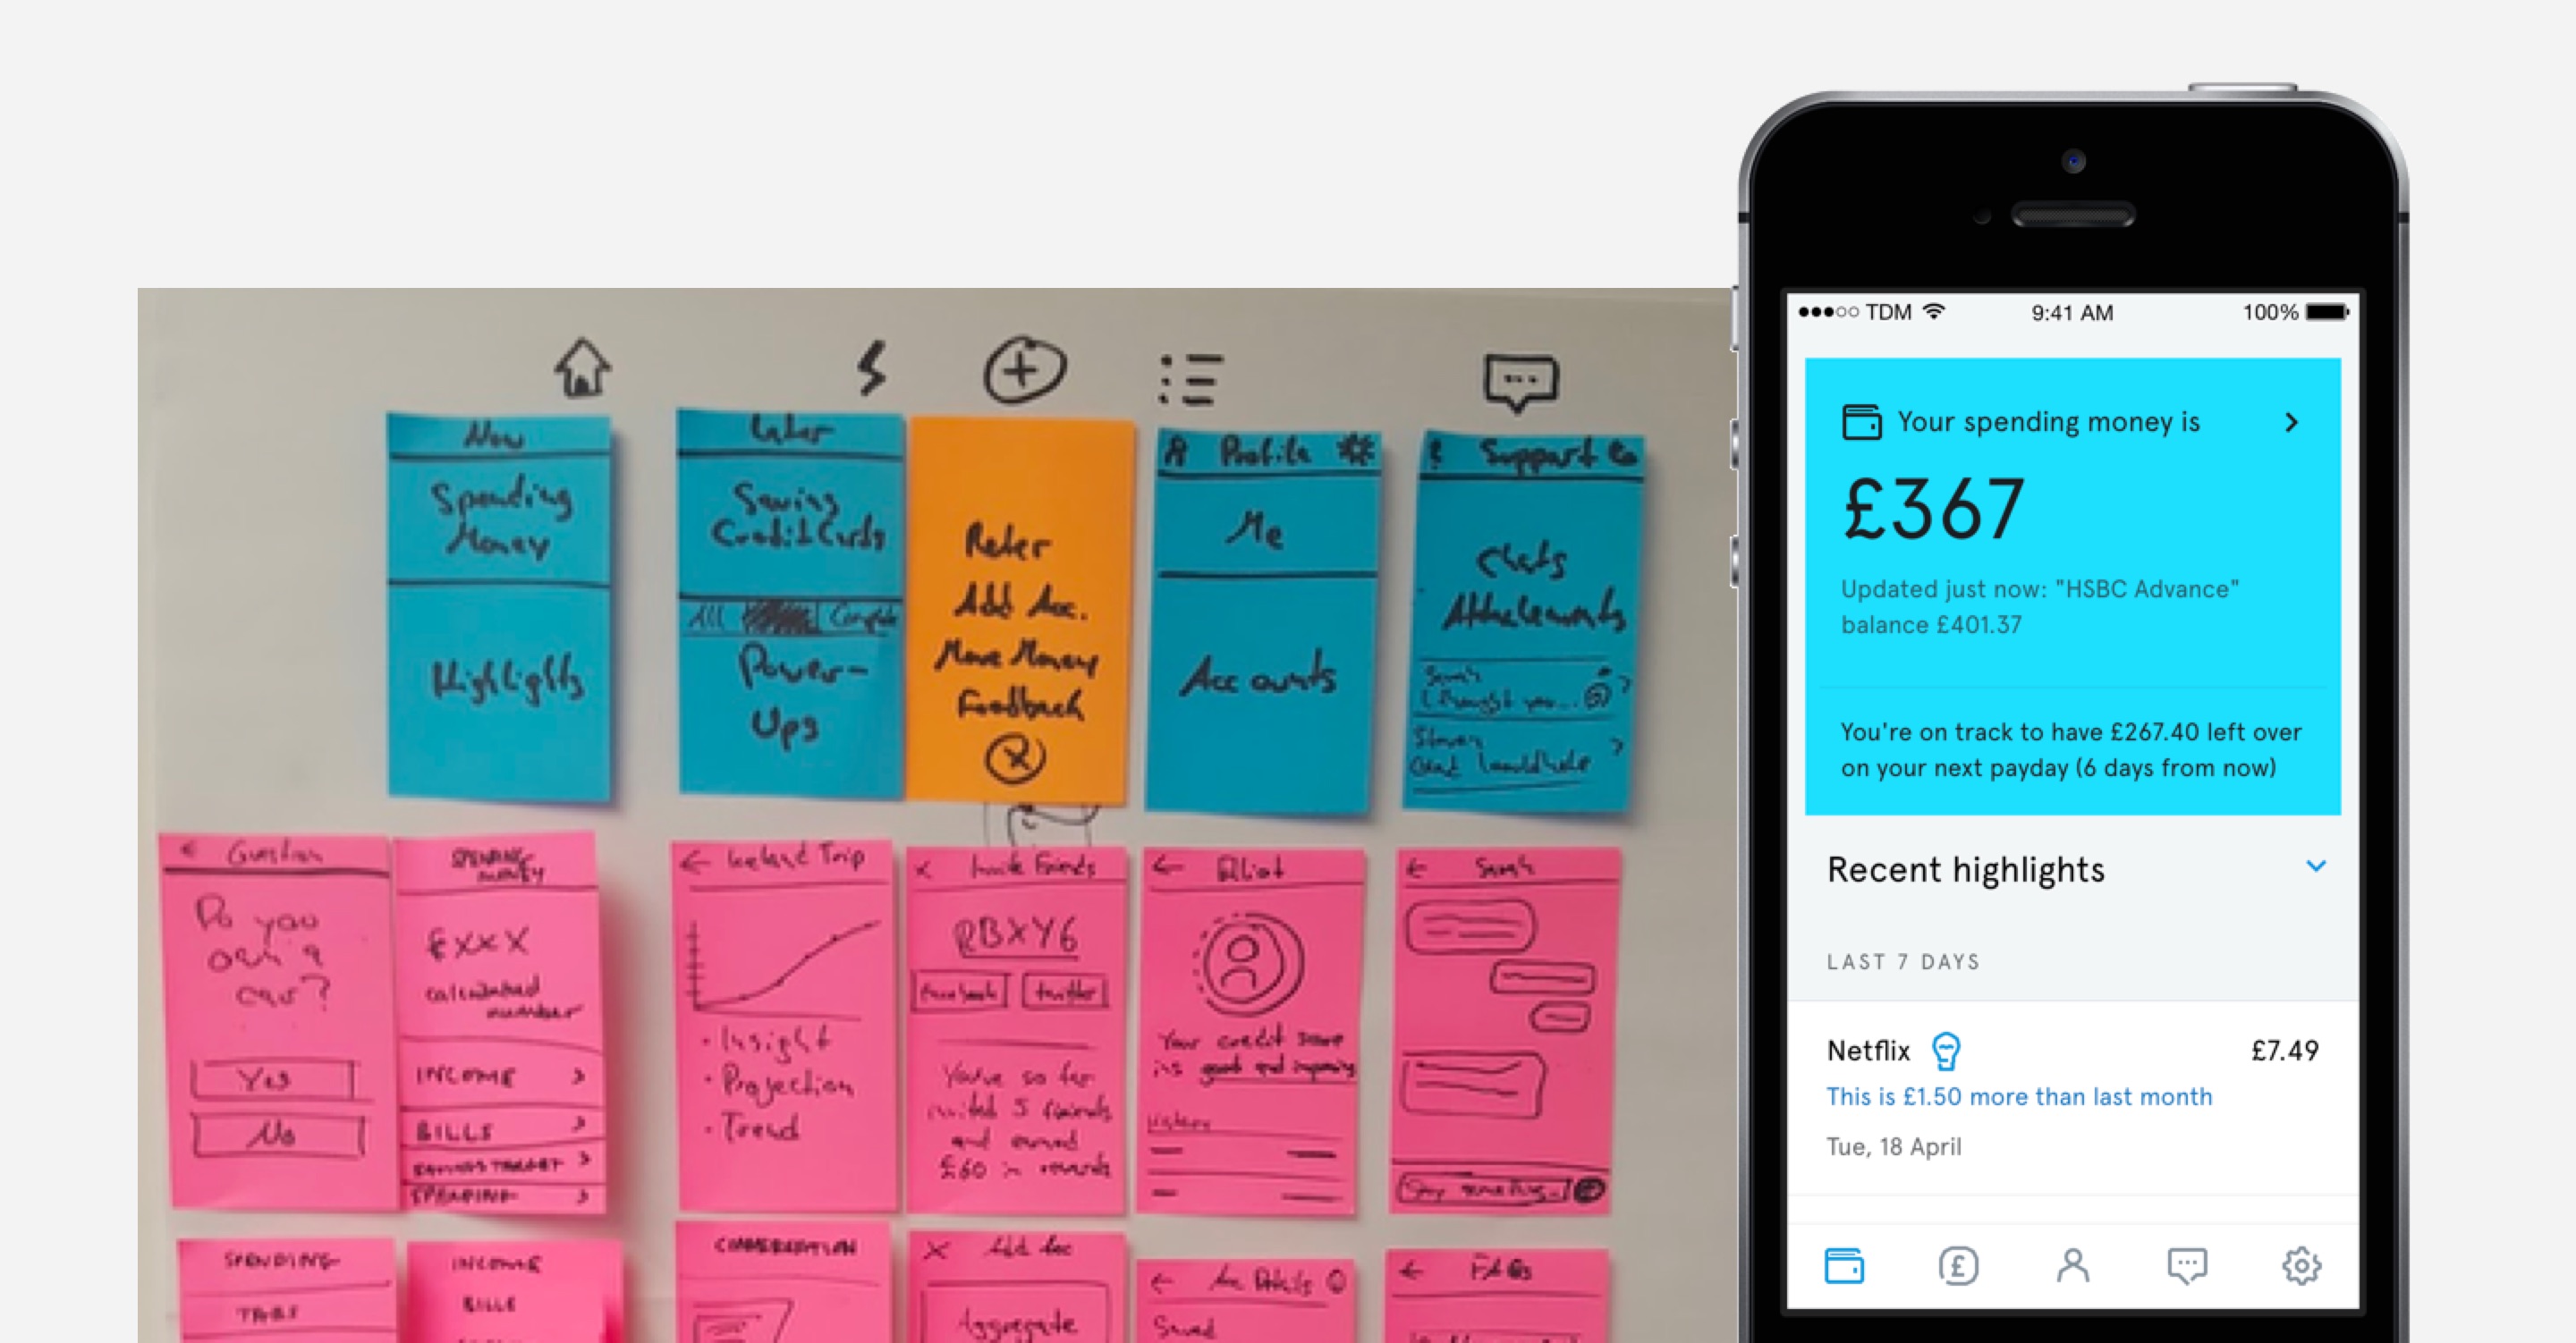 Now
Spending
Money
Highlights
Later
Saving
Credit Cards
All
Power-
Ups
Refer
Add Acc.
Move Money
Feedback
Profile
Me
Accounts
Support
Chats
Attachments
Sarah
I thought you...
Question
Do you
own a
car?
Yes
No
SPENDING
MONEY
£XXX
calculated
number
INCOME
BILLS
SAVINGS TARGET
SPENDING
Iceland Trip
• Insight
• Projection
• Trend
Invite Friends
RBXY6
facebook
twitter
You've so far
invited 5 friends
and earned
£60 in rewards
Elliot
Your credit score
is good and improving
History
Sarah
Say something...
SPENDING
TABS
INCOME
BILLS
CONVERSATION
Add Acc
Aggregate
Acc Details
Saved
FAQs
TDM
9:41 AM
100%
Your spending money is
£367
Updated just now: "HSBC Advance"
balance £401.37
You're on track to have £267.40 left over
on your next payday (6 days from now)
Recent highlights
LAST 7 DAYS
Netflix
£7.49
This is £1.50 more than last month
Tue, 18 April